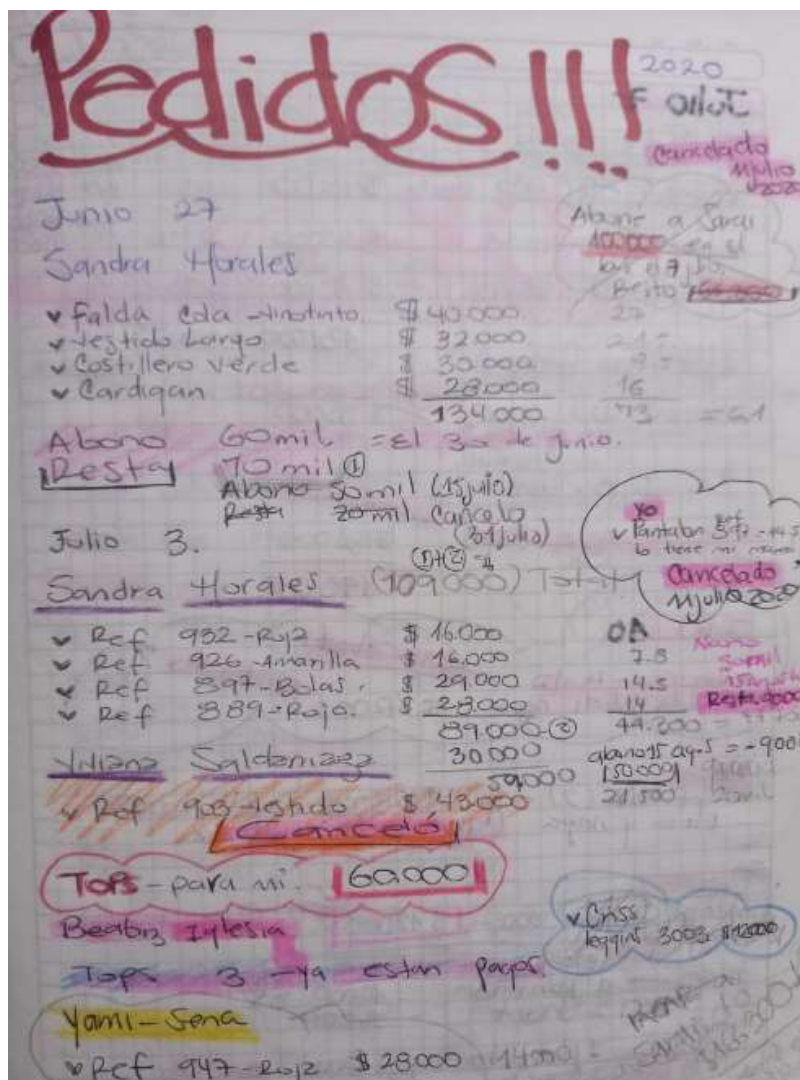 Pedidos!!!
2020
Cancelado
11 julio
2020
Junio 27
Sandra Morales
Aboné a Sarai
100.000 en el
7
Resto
✓ Falda Cda vinotinto $ 40.000
✓ Vestido Largo $ 32.000
✓ Costillero Verde $ 30.000
✓ Cardigan $ 28.000
134.000
27
16
73
Abono 60mil = El 30 de junio.
Resta 70mil ①
Abono 50mil (15 julio)
Resta 20mil Cancelo
(31 julio)
Julio 3.
①+②=
Sandra Morales (109000) Total
Yo
✓ Pantalon Ref
lo tiene mi
Cancelado
11 julio 2020
✓ Ref 932-Roja $ 16.000
✓ Ref 926-Amarilla $ 16.000
✓ Ref 897-Bolas $ 29.000
✓ Ref 889-Rojo. $ 28.000
89.000-②
30000
59000
7.8
14.5
14
44.300
Resta
abono 15 ag.s = -900
150000
21.500
✓ Ref 903-Vestido $ 43.000
Canceló
Tops-para mi. 60.000
Beatriz Iglesia
Tops 3 -ya estan pagos.
✓ Criss
leggins 3003 $42000
Yami-Sena
✓ Ref 947-Roja $ 28000 14000